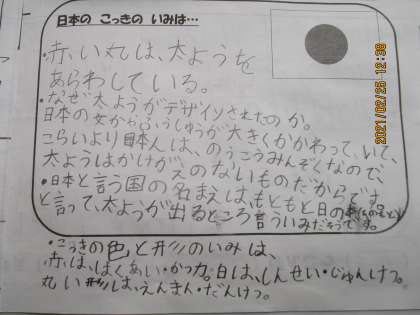 日本の こっきの いみは…
・赤い丸は、太ようを
あらわしている。
・なぜ太ようがデザインされたのか。
日本の文かふうしゅうが大きくかかわって、いて、
こらいより日本人は、のうこうみんぞくなので、
太ようはかけがえのないものだからです。
・日本と言う国の名まえは、もともと日の
と言って、太ようが出るところ言ういみだそうです。
・こっきの色と形のいみは、
赤は、はくあい・かつ力。白は、しんせい・じゅんけつ。
丸い形は、えんまん・だんけつ。
2021/02/25 12:38